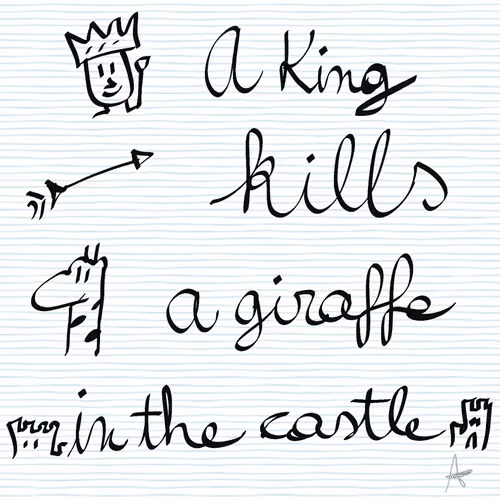 A King
kills
a giraffe
in the castle